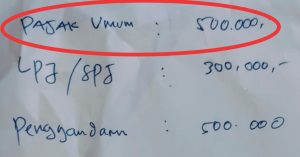 PAJAK Umum : 500.000,
LPJ/SPJ : 300,000,-
Penggandaan : 500.000